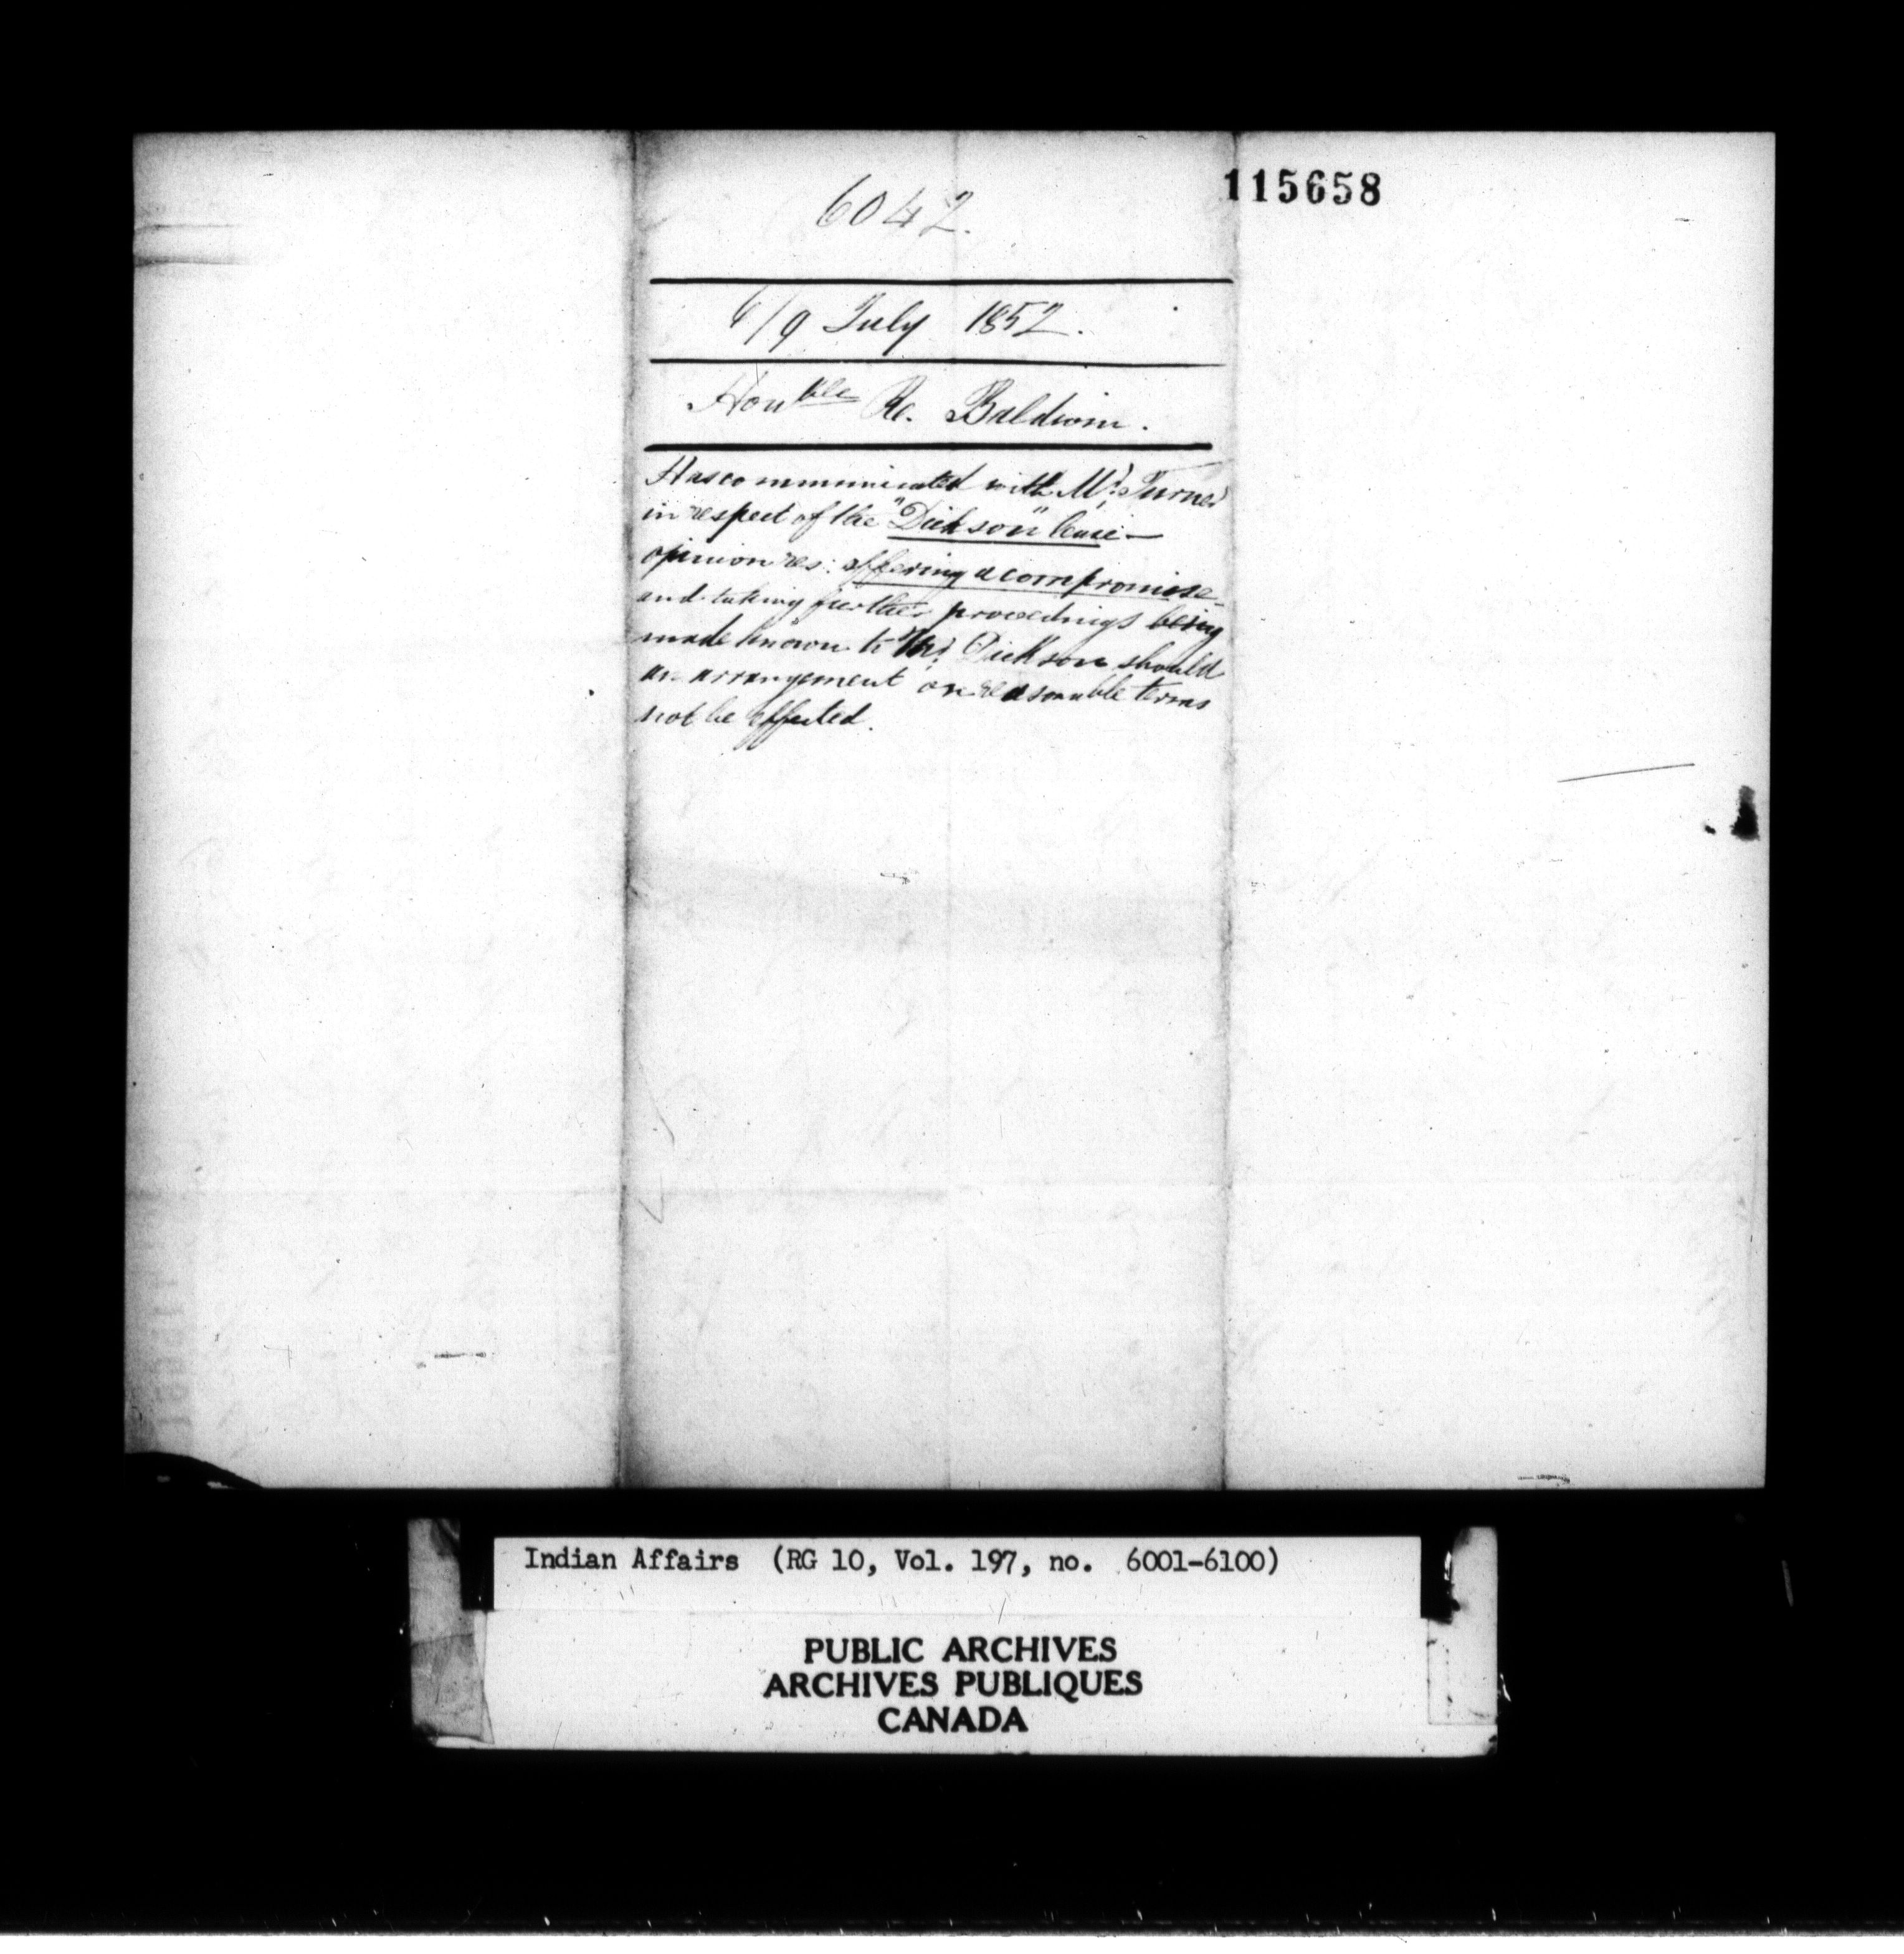 115658
6042.
6/9 July 1852.
Honble Rt. Baldwin.
Has communicated with Mr. Turner
in respect of the "Dickson" Case —
opinion res: offering a compromise
and taking further proceedings being
made known to Mr. Dickson should
an arrangement on reasonable terms
not be effected.
Indian Affairs (RG 10, Vol. 197, no. 6001-6100)
PUBLIC ARCHIVES
ARCHIVES PUBLIQUES
CANADA